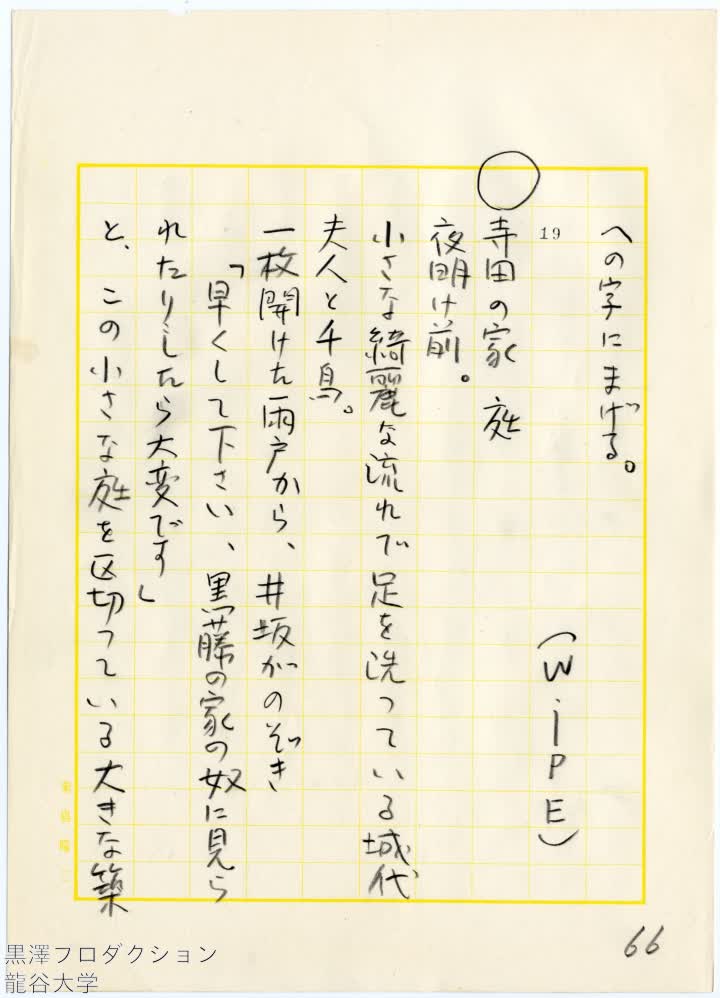 への字にまげる。
(WiPE)
19
寺田の家 庭
夜明け前。
小さな綺麗な流れで足を洗っている城代
夫人と千鳥。
一枚開けた雨戸から、井坂がのぞき
「早くして下さい、黒藤の家の奴に見ら
れたりしたら大変です」
と、この小さな庭を区切っている大きな築
66
黒澤プロダクション
龍谷大学